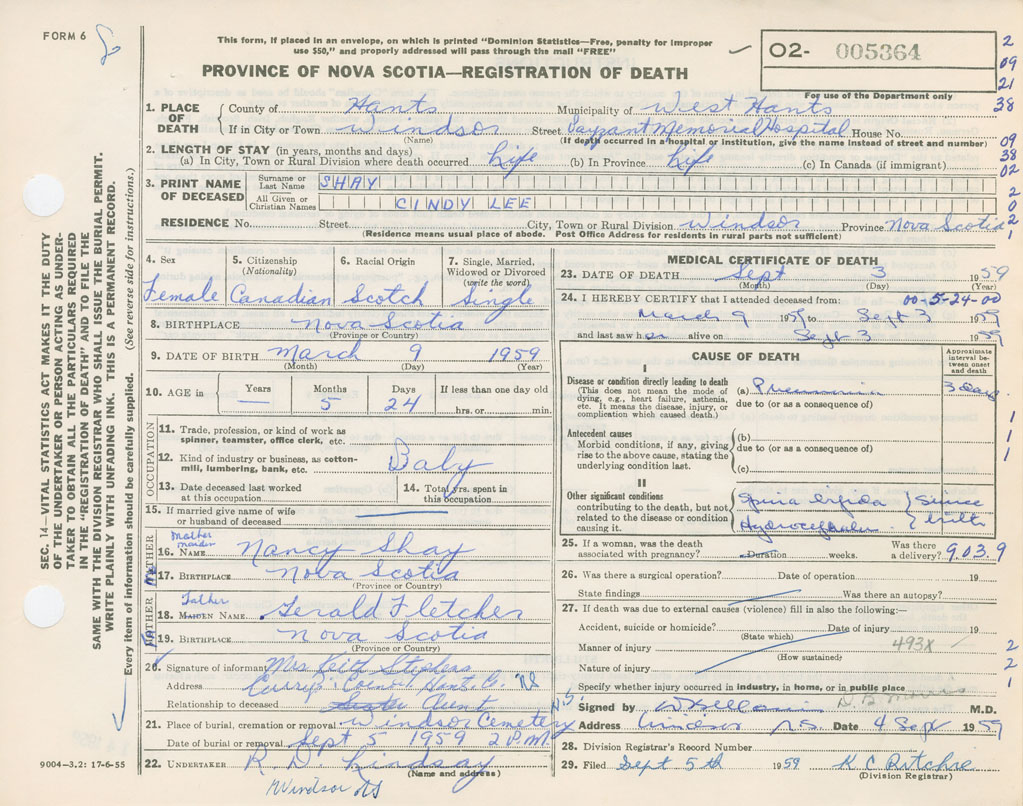 FORM 6
This form, if placed in an envelope, on which is printed "Dominion Statistics—Free, penalty for improper
use $50," and properly addressed will pass through the mail "FREE"
O2- 005364
For use of the Department only
PROVINCE OF NOVA SCOTIA—REGISTRATION OF DEATH
1. PLACE OF DEATH
County of Hants Municipality of West Hants
If in City or Town Windsor Street Payzant Memorial Hospital House No.
(Name) (If death occurred in a hospital or institution, give the name instead of street and number)
2. LENGTH OF STAY (in years, months and days)
(a) In City, Town or Rural Division where death occurred Life (b) In Province Life (c) In Canada (if immigrant)
3. PRINT NAME OF DECEASED
Surname or Last Name SHAY
All Given or Christian Names CINDY LEE
RESIDENCE No. Street City, Town or Rural Division Windsor Province Nova Scotia
(Residence means usual place of abode. Post Office Address for residents in rural parts not sufficient)
2
09
21
38
09
38
02
2
0
2
1
SEC. 14—VITAL STATISTICS ACT MAKES IT THE DUTY
OF THE UNDERTAKER OR PERSON ACTING AS UNDER-
TAKER TO OBTAIN ALL THE PARTICULARS REQUIRED
IN THE "REGISTRATION OF DEATH" AND TO FILE THE
SAME WITH THE DIVISION REGISTRAR WHO SHALL ISSUE THE BURIAL PERMIT.
WRITE PLAINLY WITH UNFADING INK. THIS IS A PERMANENT RECORD.
Every item of information should be carefully supplied. (See reverse side for instructions.)
4. Sex Female
5. Citizenship (Nationality) Canadian
6. Racial Origin Scotch
7. Single, Married, Widowed or Divorced (write the word) Single
8. BIRTHPLACE Nova Scotia
(Province or Country)
9. DATE OF BIRTH March 9 1959
(Month) (Day) (Year)
10. AGE in Years — Months 5 Days 24 If less than one day old
hrs. or min.
OCCUPATION
11. Trade, profession, or kind of work as
spinner, teamster, office clerk, etc.
12. Kind of industry or business, as cotton-
mill, lumbering, bank, etc. Baby
13. Date deceased last worked
at this occupation
14. Total yrs. spent in
this occupation
15. If married give name of wife
or husband of deceased
FATHER
Mother
maiden
16. NAME Nancy Shay
17. BIRTHPLACE Nova Scotia
(Province or Country)
MOTHER
Father
18. MAIDEN NAME Gerald Fletcher
19. BIRTHPLACE Nova Scotia
(Province or Country)
20. Signature of informant Mrs Keith Stephens
Address Currys Corner Hants Co. NS
Relationship to deceased Sister Aunt
21. Place of burial, cremation or removal Windsor Cemetery N.S.
Date of burial or removal Sept 5 1959 2 P.M.
22. UNDERTAKER R D Lindsay
(Name and address)
Windsor NS
9004—3.2: 17-6-55
MEDICAL CERTIFICATE OF DEATH
23. DATE OF DEATH Sept 3 1959
(Month) (Day) (Year)
24. I HEREBY CERTIFY that I attended deceased from: 00-5-24-00
March 9 1959 to Sept 3 1959
and last saw her alive on Sept 3 1959
CAUSE OF DEATH
Approximate interval between onset and death
I
Disease or condition directly leading to death
(This does not mean the mode of
dying, e.g., heart failure, asthenia,
etc. It means the disease, injury, or
complication which caused death.)
(a) Pneumonia 3 days
due to (or as a consequence of)
Antecedent causes
Morbid conditions, if any, giving
rise to the above cause, stating the
underlying condition last.
(b)
due to (or as a consequence of)
(c)
1
1
1
II
Other significant conditions
contributing to the death, but not
related to the disease or condition
causing it.
Spina bifida
Hydrocephalus
Since
birth
25. If a woman, was the death
associated with pregnancy? Duration weeks. Was there
a delivery? 9.03.9
26. Was there a surgical operation? Date of operation 19
State findings Was there an autopsy?
27. If death was due to external causes (violence) fill in also the following:—
Accident, suicide or homicide? Date of injury 19
(State which)
Manner of injury 493X
(How sustained)
Nature of injury
Specify whether injury occurred in industry, in home, or in public place
2
2
1
Signed by M.D.
Address Windsor N.S. Date 4 Sept 1959
28. Division Registrar's Record Number
29. Filed Sept 5th 1959 K C Ritchie
(Division Registrar)